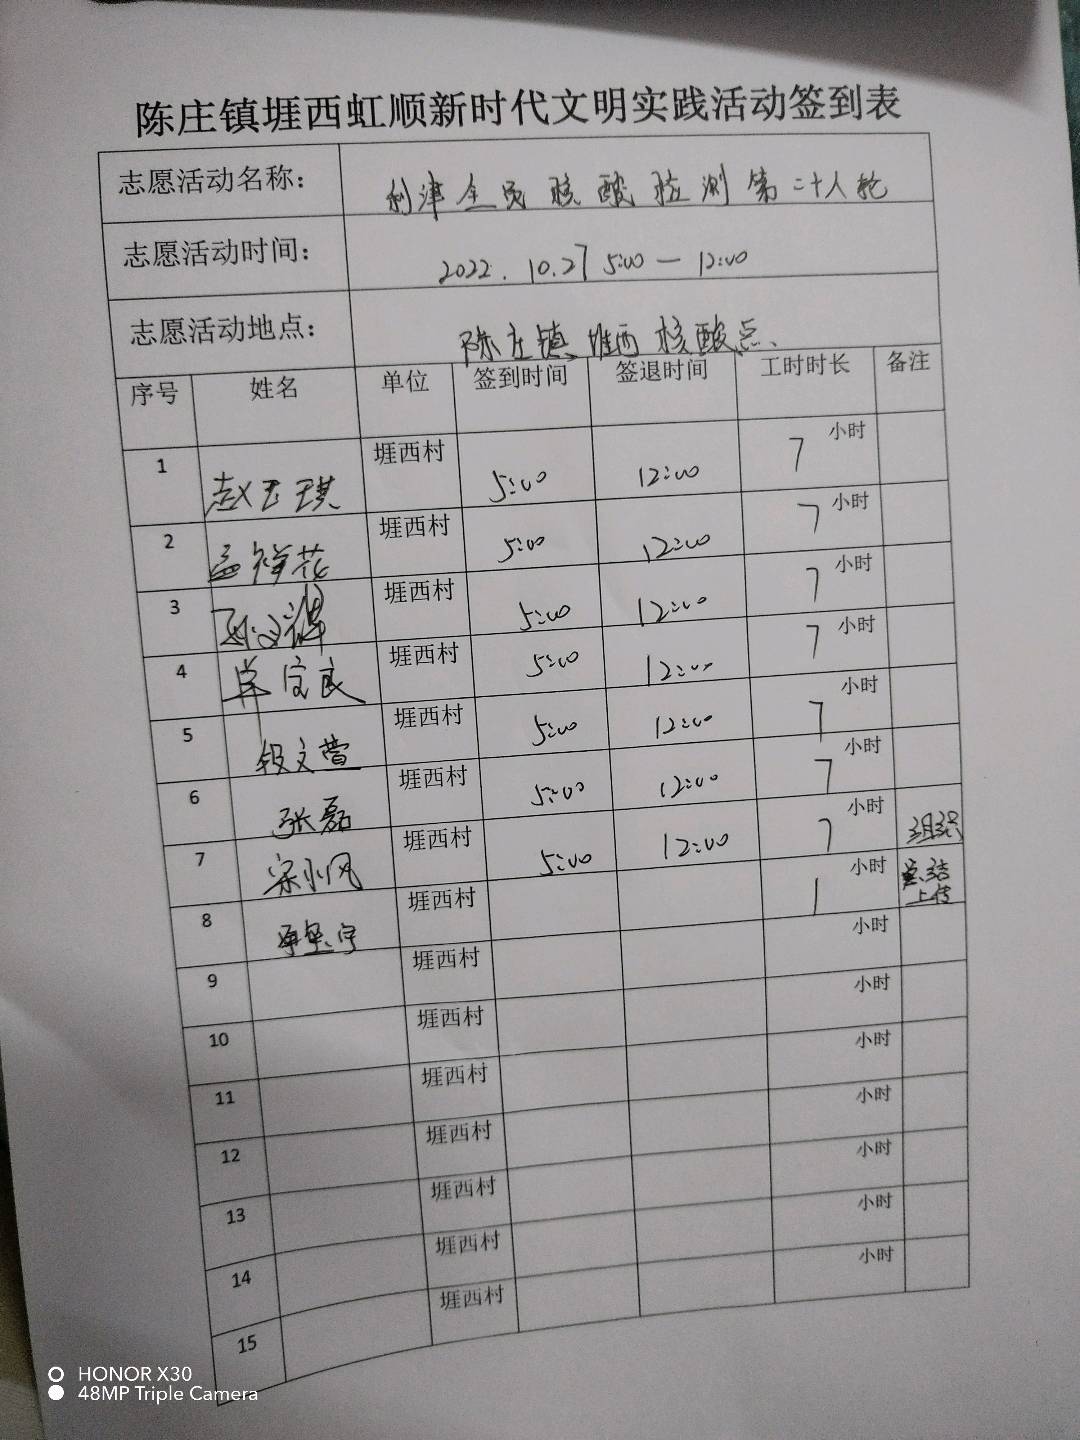 陈庄镇堐西虹顺新时代文明实践活动签到表
志愿活动名称： 利津全员核酸检测第二十八轮
志愿活动时间： 2022.10.27 5:00 — 12:00
志愿活动地点： 陈庄镇堐西核酸点
序号 姓名 单位 签到时间 签退时间 工时时长 备注
1 赵玉琪 堐西村 5:00 12:00 7 小时
2 孟祥花 堐西村 5:00 12:00 7 小时
3 堐西村 5:00 12:00 7 小时
4 单宝良 堐西村 5:00 12:00 7 小时
5 文营 堐西村 5:00 12:00 7 小时
6 张磊 堐西村 5:00 12:00 7 小时
7 宋小风 堐西村 5:00 12:00 7 小时 组织
8 堐西村 1 小时 总结上传
9 堐西村 小时
10 堐西村 小时
11 堐西村 小时
12 堐西村 小时
13 堐西村 小时
14 堐西村 小时
15 堐西村 小时
HONOR X30
48MP Triple Camera